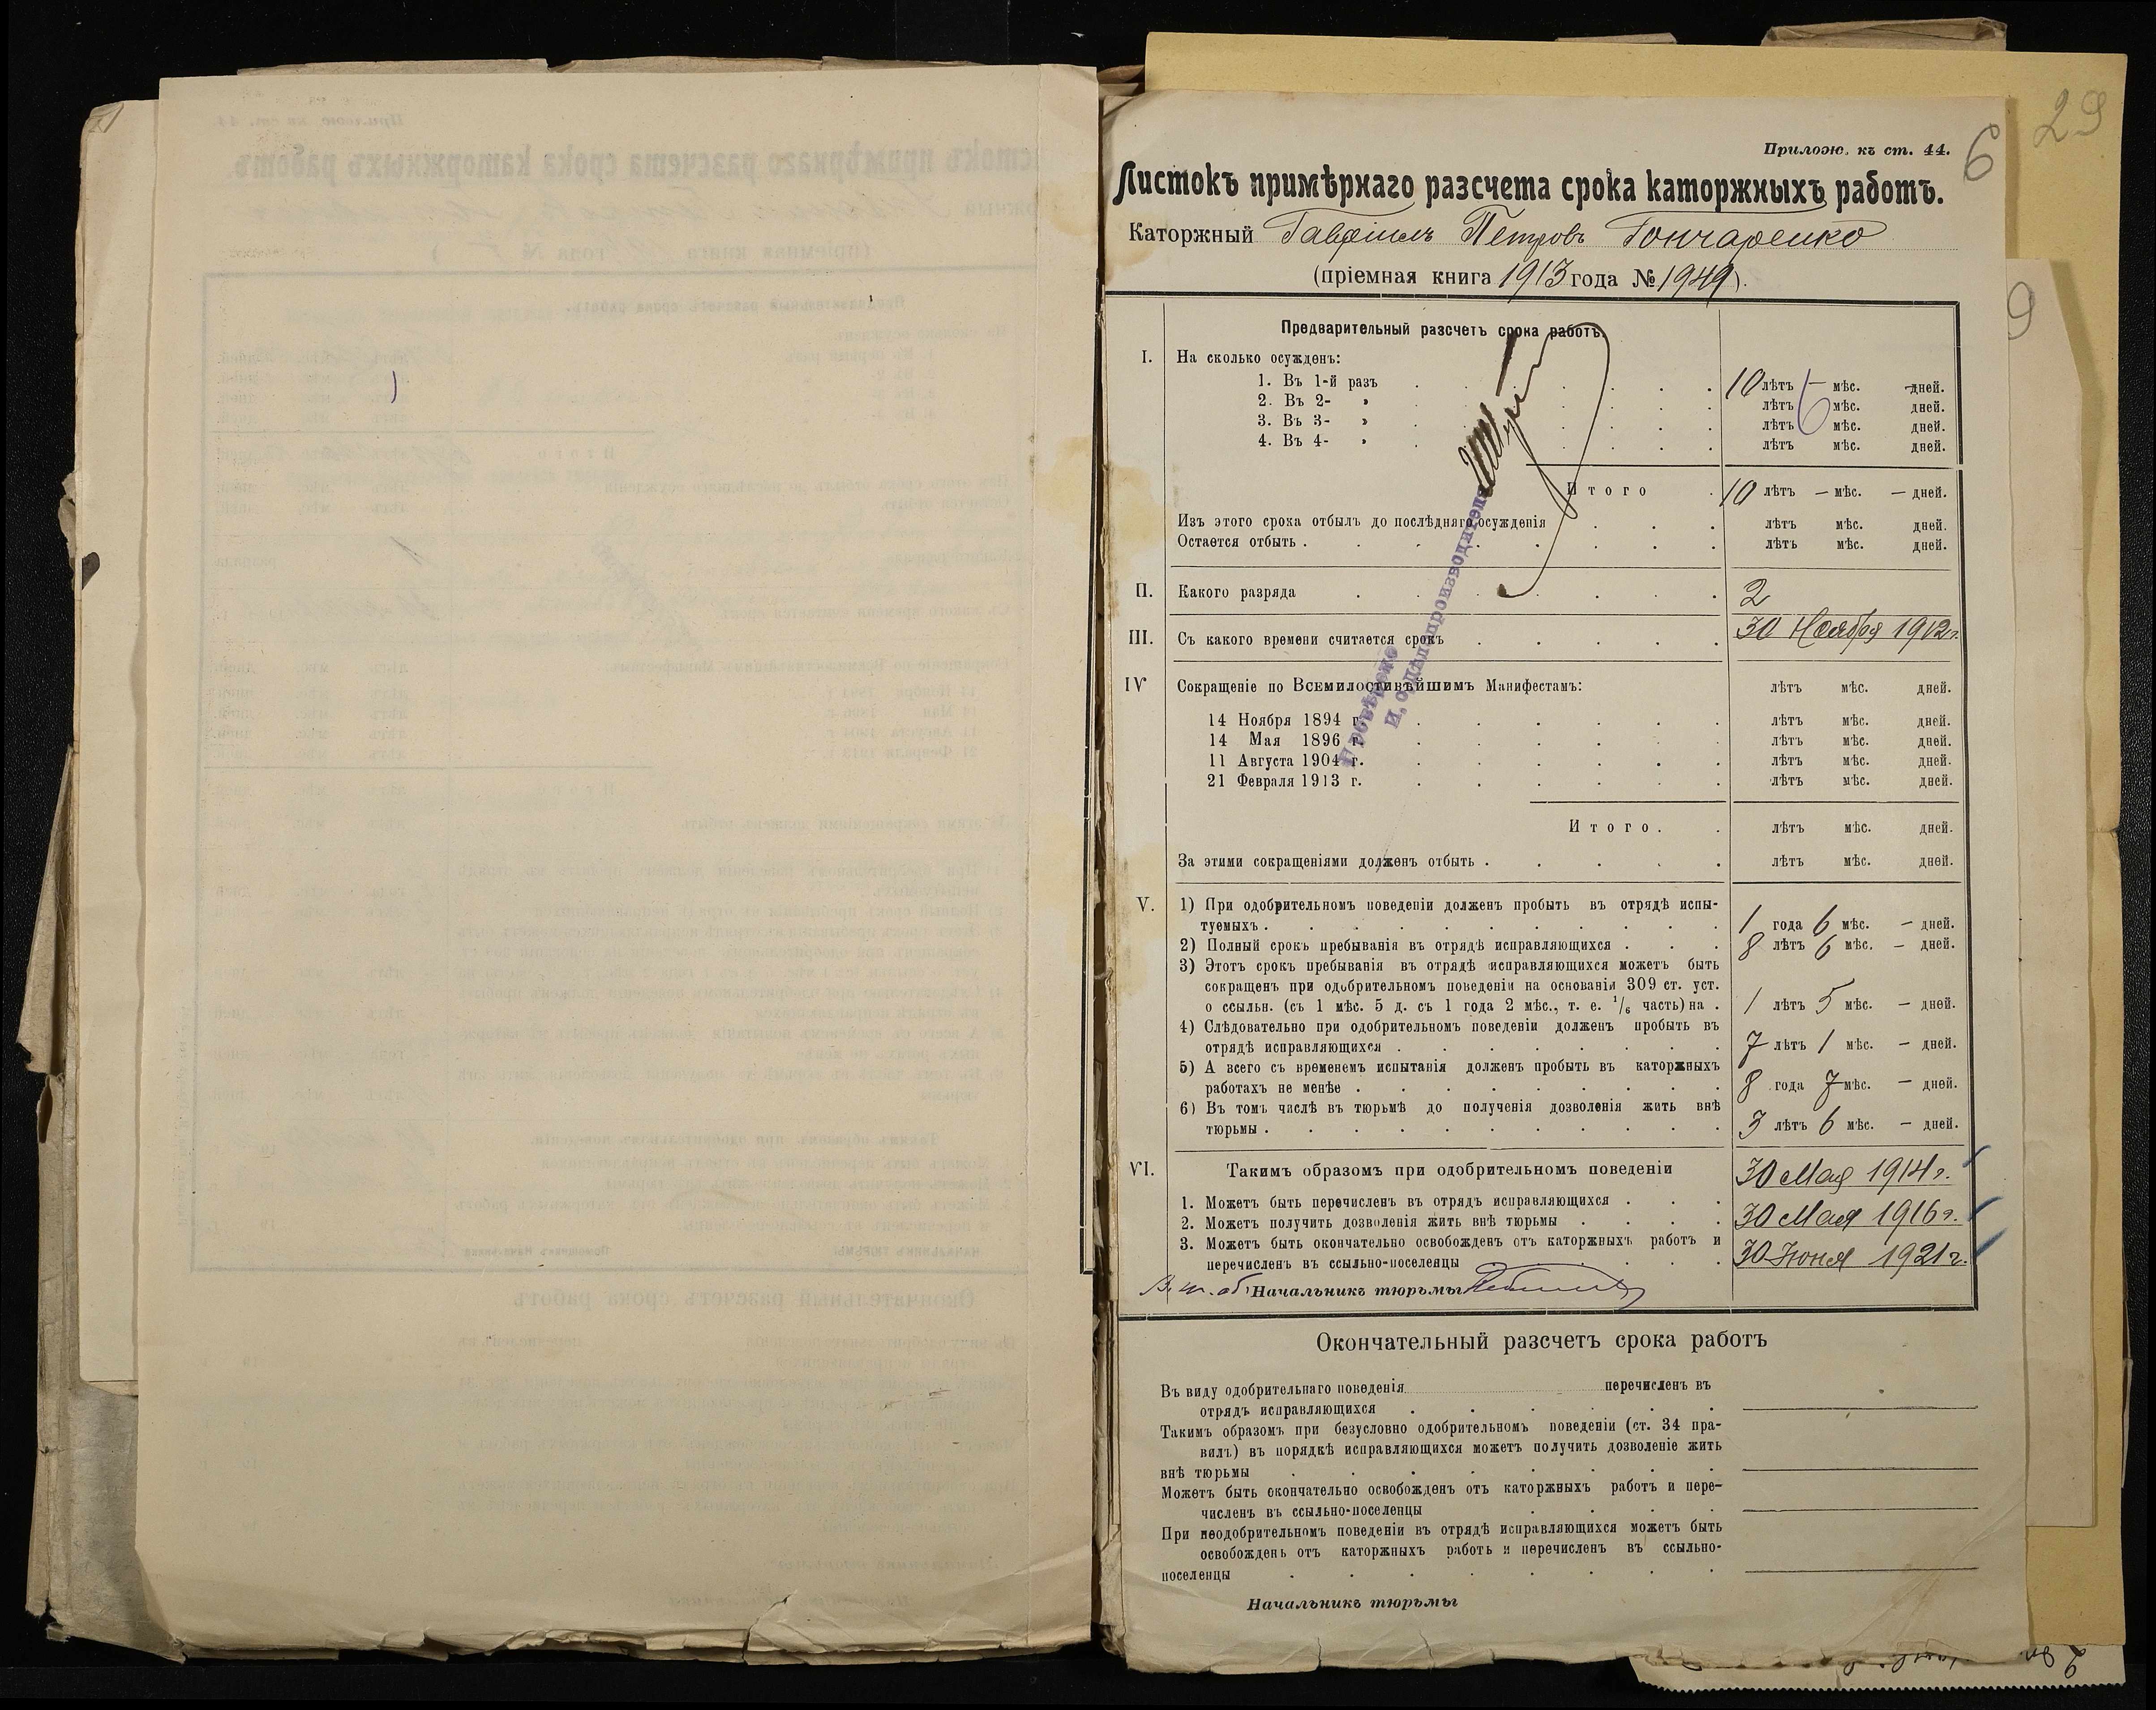 29
6
Прилож. къ ст. 44.
Листокъ примѣрнаго разсчета срока каторжныхъ работъ.
Каторжный Гавріилъ Петровъ Гончаренко
(пріемная книга 1913 года № 1949).
Предварительный разсчетъ срока работъ.
I. На сколько осужденъ:
1. Въ 1-й разъ 10 лѣтъ — мѣс. — дней.
2. Въ 2- » лѣтъ мѣс. дней.
3. Въ 3- » лѣтъ мѣс. дней.
4. Въ 4- » лѣтъ мѣс. дней.
Итого 10 лѣтъ — мѣс. — дней.
Изъ этого срока отбылъ до послѣдняго осужденія лѣтъ мѣс. дней.
Остается отбыть . лѣтъ мѣс. дней.
II. Какого разряда 2
III. Съ какого времени считается срокъ 30 Ноября 1912 г.
IV Сокращеніе по Всемилостивѣйшимъ Манифестамъ: лѣтъ мѣс. дней.
14 Ноября 1894 г. лѣтъ мѣс. дней.
14 Мая 1896 г. лѣтъ мѣс. дней.
11 Августа 1904 г. лѣтъ мѣс. дней.
21 Февраля 1913 г. лѣтъ мѣс. дней.
Итого. лѣтъ мѣс. дней.
За этими сокращеніями долженъ отбыть . лѣтъ мѣс. дней.
Провѣрено
И. д. дѣлопроизводителя
V. 1) При одобрительномъ поведеніи долженъ пробыть въ отрядѣ испы-
туемыхъ . 1 года 6 мѣс. — дней.
2) Полный срокъ пребыванія въ отрядѣ исправляющихся . 8 лѣтъ 6 мѣс. — дней.
3) Этотъ срокъ пребыванія въ отрядѣ исправляющихся можетъ быть
сокращенъ при одобрительномъ поведеніи на основаніи 309 ст. уст.
о ссыльн. (съ 1 мѣс. 5 д. съ 1 года 2 мѣс., т. е. 1/6 часть) на . 1 лѣтъ 5 мѣс. — дней.
4) Слѣдовательно при одобрительномъ поведеніи долженъ пробыть въ
отрядѣ исправляющихся . 7 лѣтъ 1 мѣс. — дней.
5) А всего съ временемъ испытанія долженъ пробыть въ каторжныхъ
работахъ не менѣе . 8 года 7 мѣс. — дней.
6) Въ томъ числѣ въ тюрьмѣ до полученія дозволенія жить внѣ
тюрьмы . 3 лѣтъ 6 мѣс. — дней.
VI. Такимъ образомъ при одобрительномъ поведеніи
1. Можетъ быть перечисленъ въ отрядъ исправляющихся . 30 Мая 1914 г.
2. Можетъ получить дозволенія жить внѣ тюрьмы . 30 Мая 1916 г.
3. Можетъ быть окончательно освобожденъ отъ каторжныхъ работъ и
перечисленъ въ ссыльно-поселенцы 30 Іюня 1921 г.
Начальникъ тюрьмы
Окончательный разсчетъ срока работъ
Въ виду одобрительнаго поведенія перечисленъ въ
отрядъ исправляющихся
Такимъ образомъ при безусловно одобрительномъ поведеніи (ст. 34 пра-
вилъ) въ порядкѣ исправляющихся можетъ получить дозволеніе жить
внѣ тюрьмы
Можетъ быть окончательно освобожденъ отъ каторжныхъ работъ и пере-
численъ въ ссыльно-поселенцы
При неодобрительномъ поведеніи въ отрядѣ исправляющихся можетъ быть
освобожденъ отъ каторжныхъ работъ и перечисленъ въ ссыльно-
поселенцы
Начальникъ тюрьмы